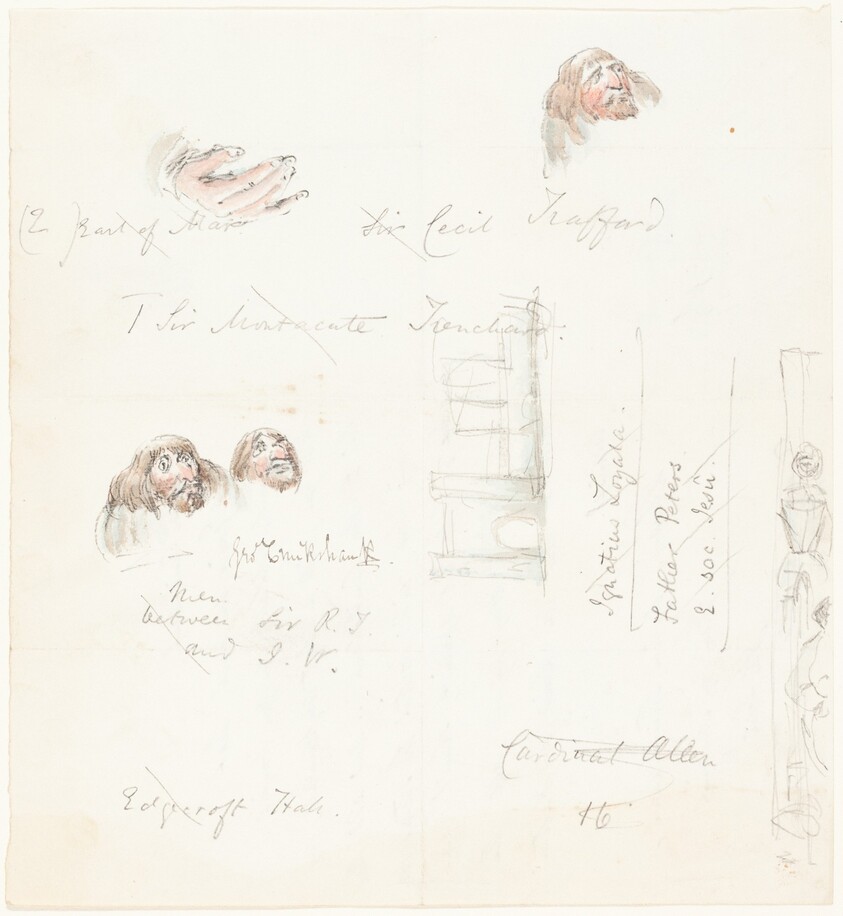 (2 ) Earl of Mar
Sir Cecil Trafford.
T Sir Montacute Trenchard.
Ignatius Loyala.
Father Peters.
e. soc. Jesu.
Geo Cruikshank.
Men
between Sir R. T.
and I. W.
Cardinal Allen
16
Edgecroft Hall.